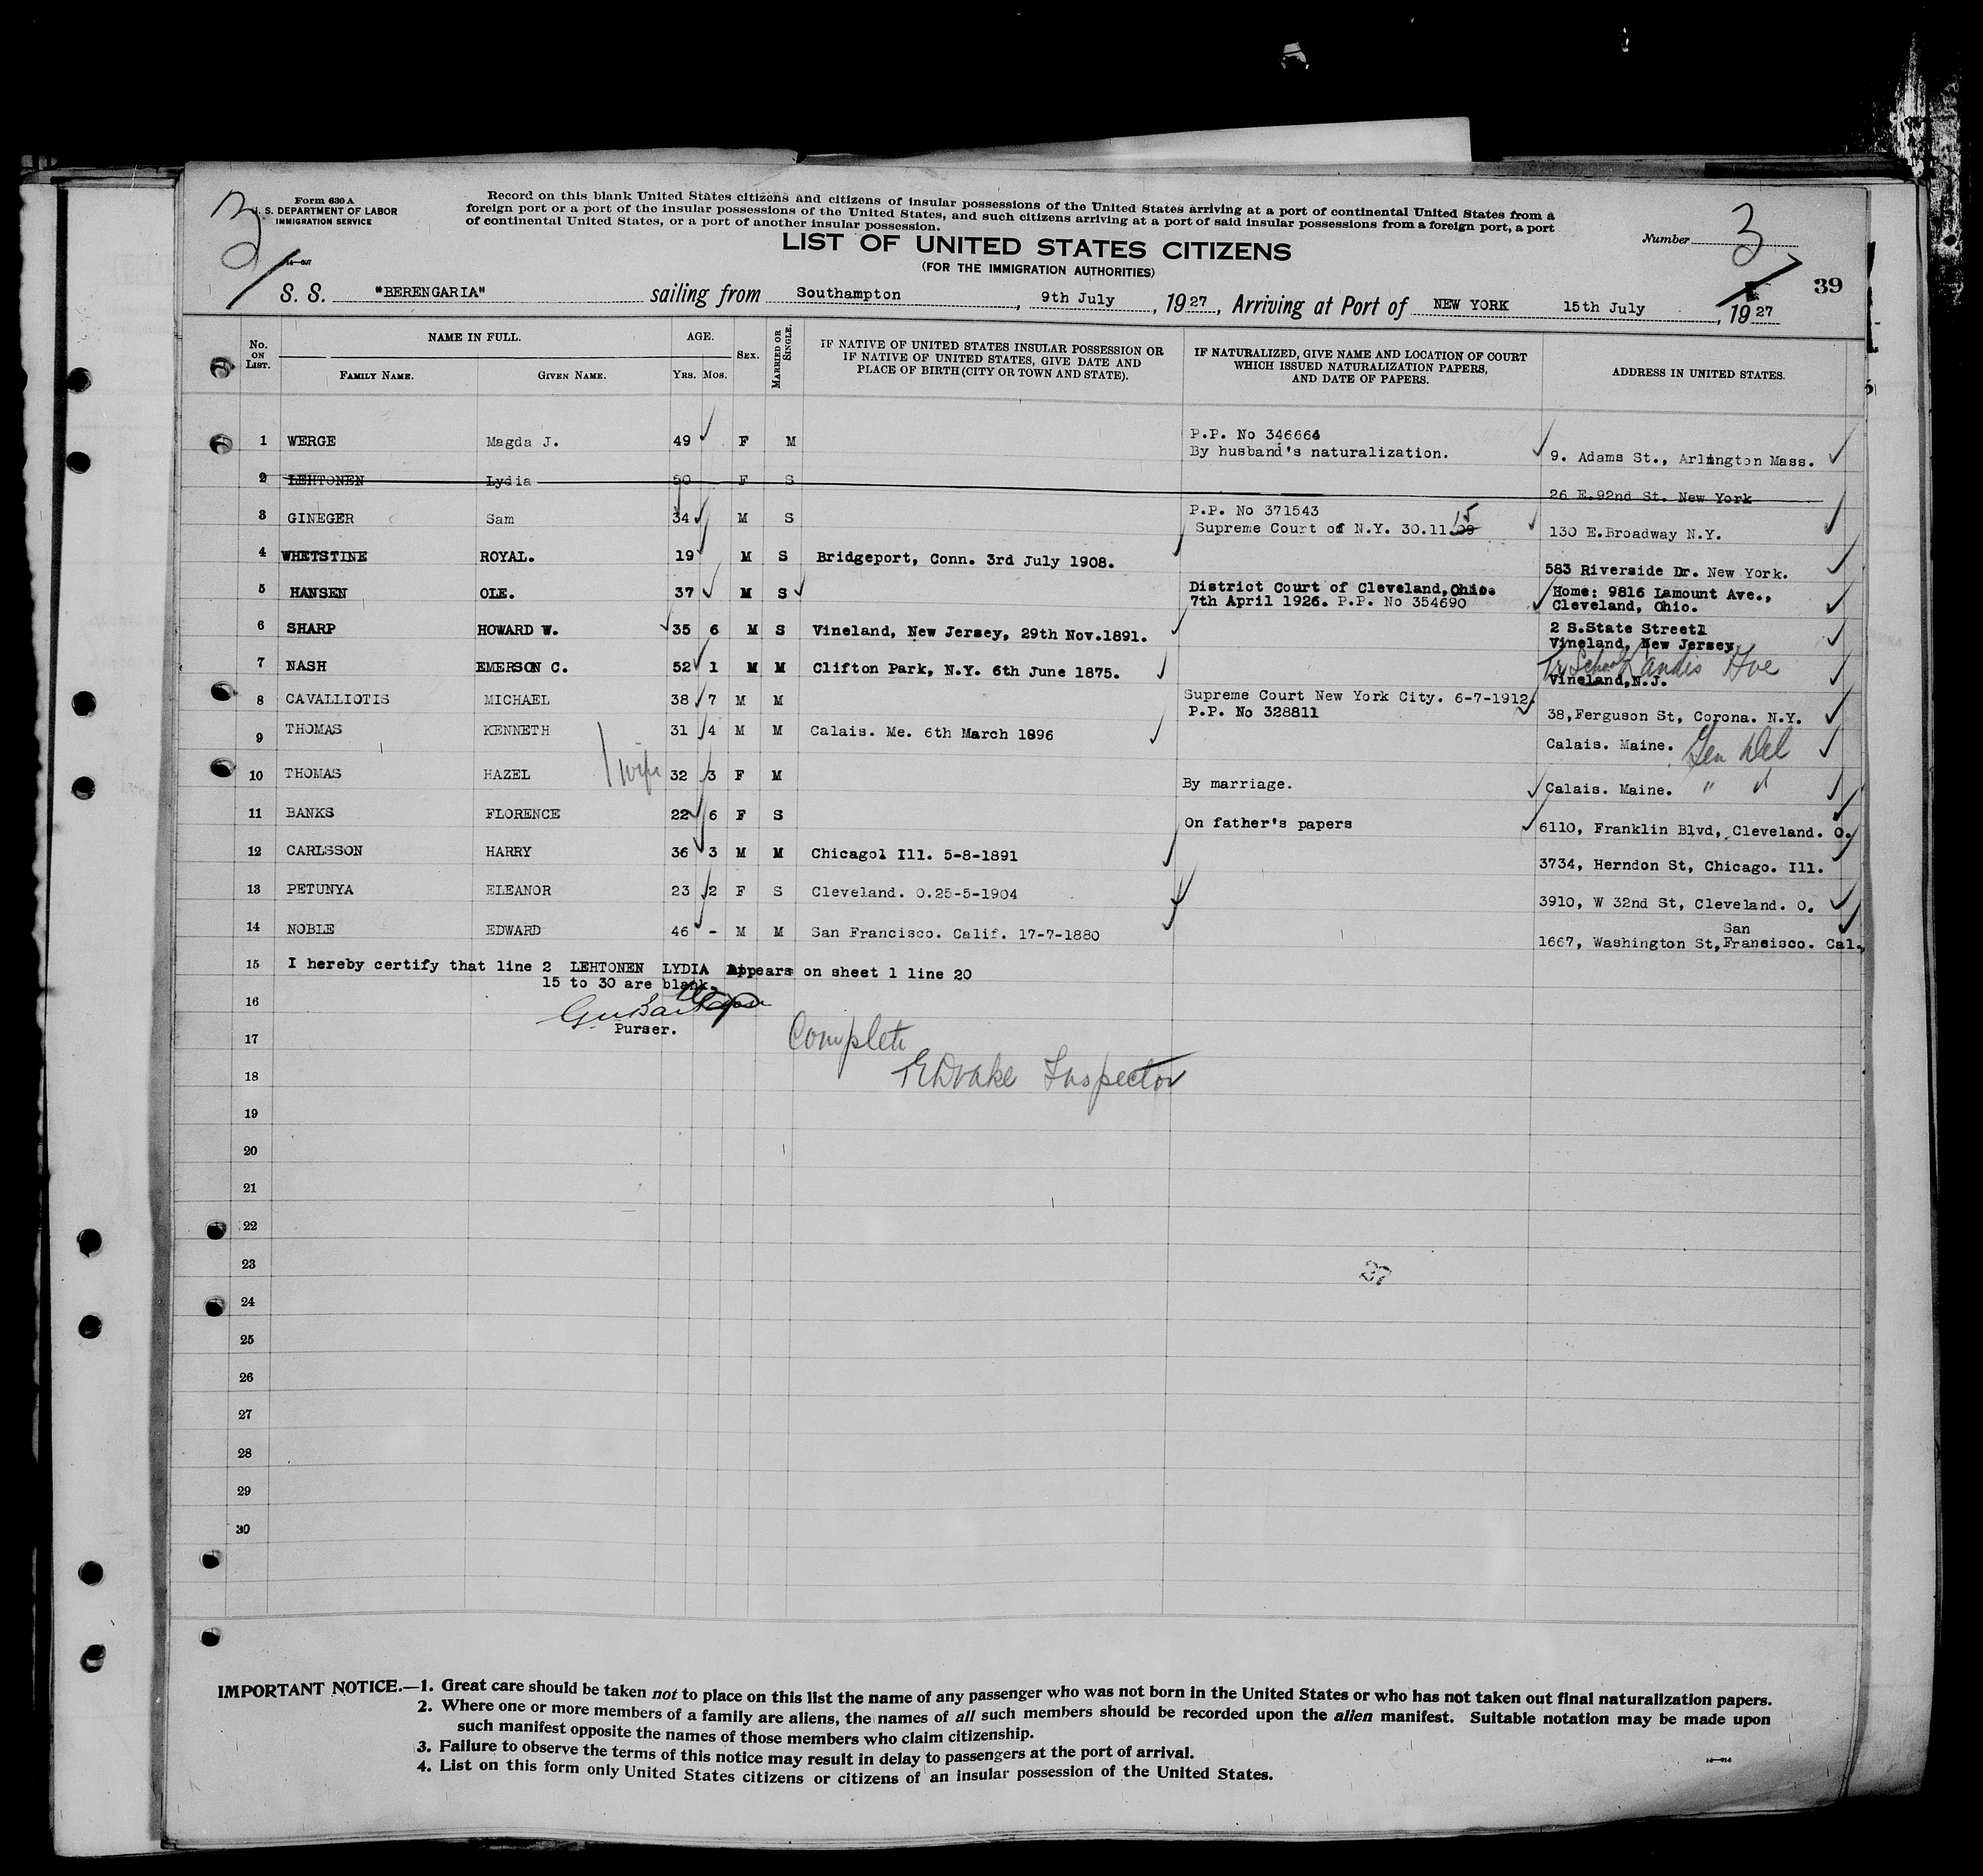 Form 630 A
U. S. DEPARTMENT OF LABOR
IMMIGRATION SERVICE
3
Record on this blank United States citizens and citizens of insular possessions of the United States arriving at a port of continental United States from a
foreign port or a port of the insular possessions of the United States, and such citizens arriving at a port of said insular possessions from a foreign port, a port
of continental United States, or a port of another insular possession.
LIST OF UNITED STATES CITIZENS
(FOR THE IMMIGRATION AUTHORITIES)
Number 3
39
S. S. "BERENGARIA" sailing from Southampton, 9th July, 1927, Arriving at Port of NEW YORK 15th July, 1927
No. ON LIST.
NAME IN FULL.
FAMILY NAME.
GIVEN NAME.
AGE.
YRS. MOS.
SEX.
MARRIED OR SINGLE.
IF NATIVE OF UNITED STATES INSULAR POSSESSION OR
IF NATIVE OF UNITED STATES, GIVE DATE AND
PLACE OF BIRTH (CITY OR TOWN AND STATE).
IF NATURALIZED, GIVE NAME AND LOCATION OF COURT
WHICH ISSUED NATURALIZATION PAPERS,
AND DATE OF PAPERS.
ADDRESS IN UNITED STATES.
1 WERGE Magda J. 49 F M P.P. No 346664
By husband's naturalization. 9. Adams St., Arlington Mass.
2 LEHTONEN Lydia 50 F S 26 E.92nd St. New York
3 GINEGER Sam 34 M S P.P. No 371543
Supreme Court of N.Y. 30.11.09 15 130 E.Broadway N.Y.
4 WHETSTINE ROYAL. 19 M S Bridgeport, Conn. 3rd July 1908. 583 Riverside Dr. New York.
5 HANSEN OLE. 37 M S District Court of Cleveland,Ohio. Home: 9816 Lamount Ave.,
7th April 1926. P.P. No 354690 Cleveland, Ohio.
6 SHARP HOWARD W. 35 6 M S Vineland, New Jersey, 29th Nov.1891. 2 S.State Street1
Vineland, New Jersey
7 NASH EMERSON C. 52 1 M M Clifton Park, N.Y. 6th June 1875. Tr School Landis Ave
Vineland,N.J.
8 CAVALLIOTIS MICHAEL 38 7 M M Supreme Court New York City. 6-7-1912.
P.P. No 328811 38,Ferguson St, Corona. N.Y.
9 THOMAS KENNETH 31 4 M M Calais. Me. 6th March 1896 Calais. Maine. Gen Del
10 THOMAS HAZEL wife 32 3 F M By marriage. Calais. Maine. " "
11 BANKS FLORENCE 22 6 F S On father's papers 6110, Franklin Blvd, Cleveland. O.
12 CARLSSON HARRY 36 3 M M Chicago1 Ill. 5-8-1891 3734, Herndon St, Chicago. Ill.
13 PETUNYA ELEANOR 23 2 F S Cleveland. O.25-5-1904 3910, W 32nd St, Cleveland. O.
14 NOBLE EDWARD 46 - M M San Francisco. Calif. 17-7-1880 1667, Washington St, San Francisco. Cal.
15 I hereby certify that line 2 LEHTONEN LYDIA Appears on sheet 1 line 20
15 to 30 are blank.
16
Purser.
17 Complete
18 Drake Inspector
19
20
21
22
23
27
24
25
26
27
28
29
30
IMPORTANT NOTICE.—1. Great care should be taken not to place on this list the name of any passenger who was not born in the United States or who has not taken out final naturalization papers.
2. Where one or more members of a family are aliens, the names of all such members should be recorded upon the alien manifest. Suitable notation may be made upon
such manifest opposite the names of those members who claim citizenship.
3. Failure to observe the terms of this notice may result in delay to passengers at the port of arrival.
4. List on this form only United States citizens or citizens of an insular possession of the United States.